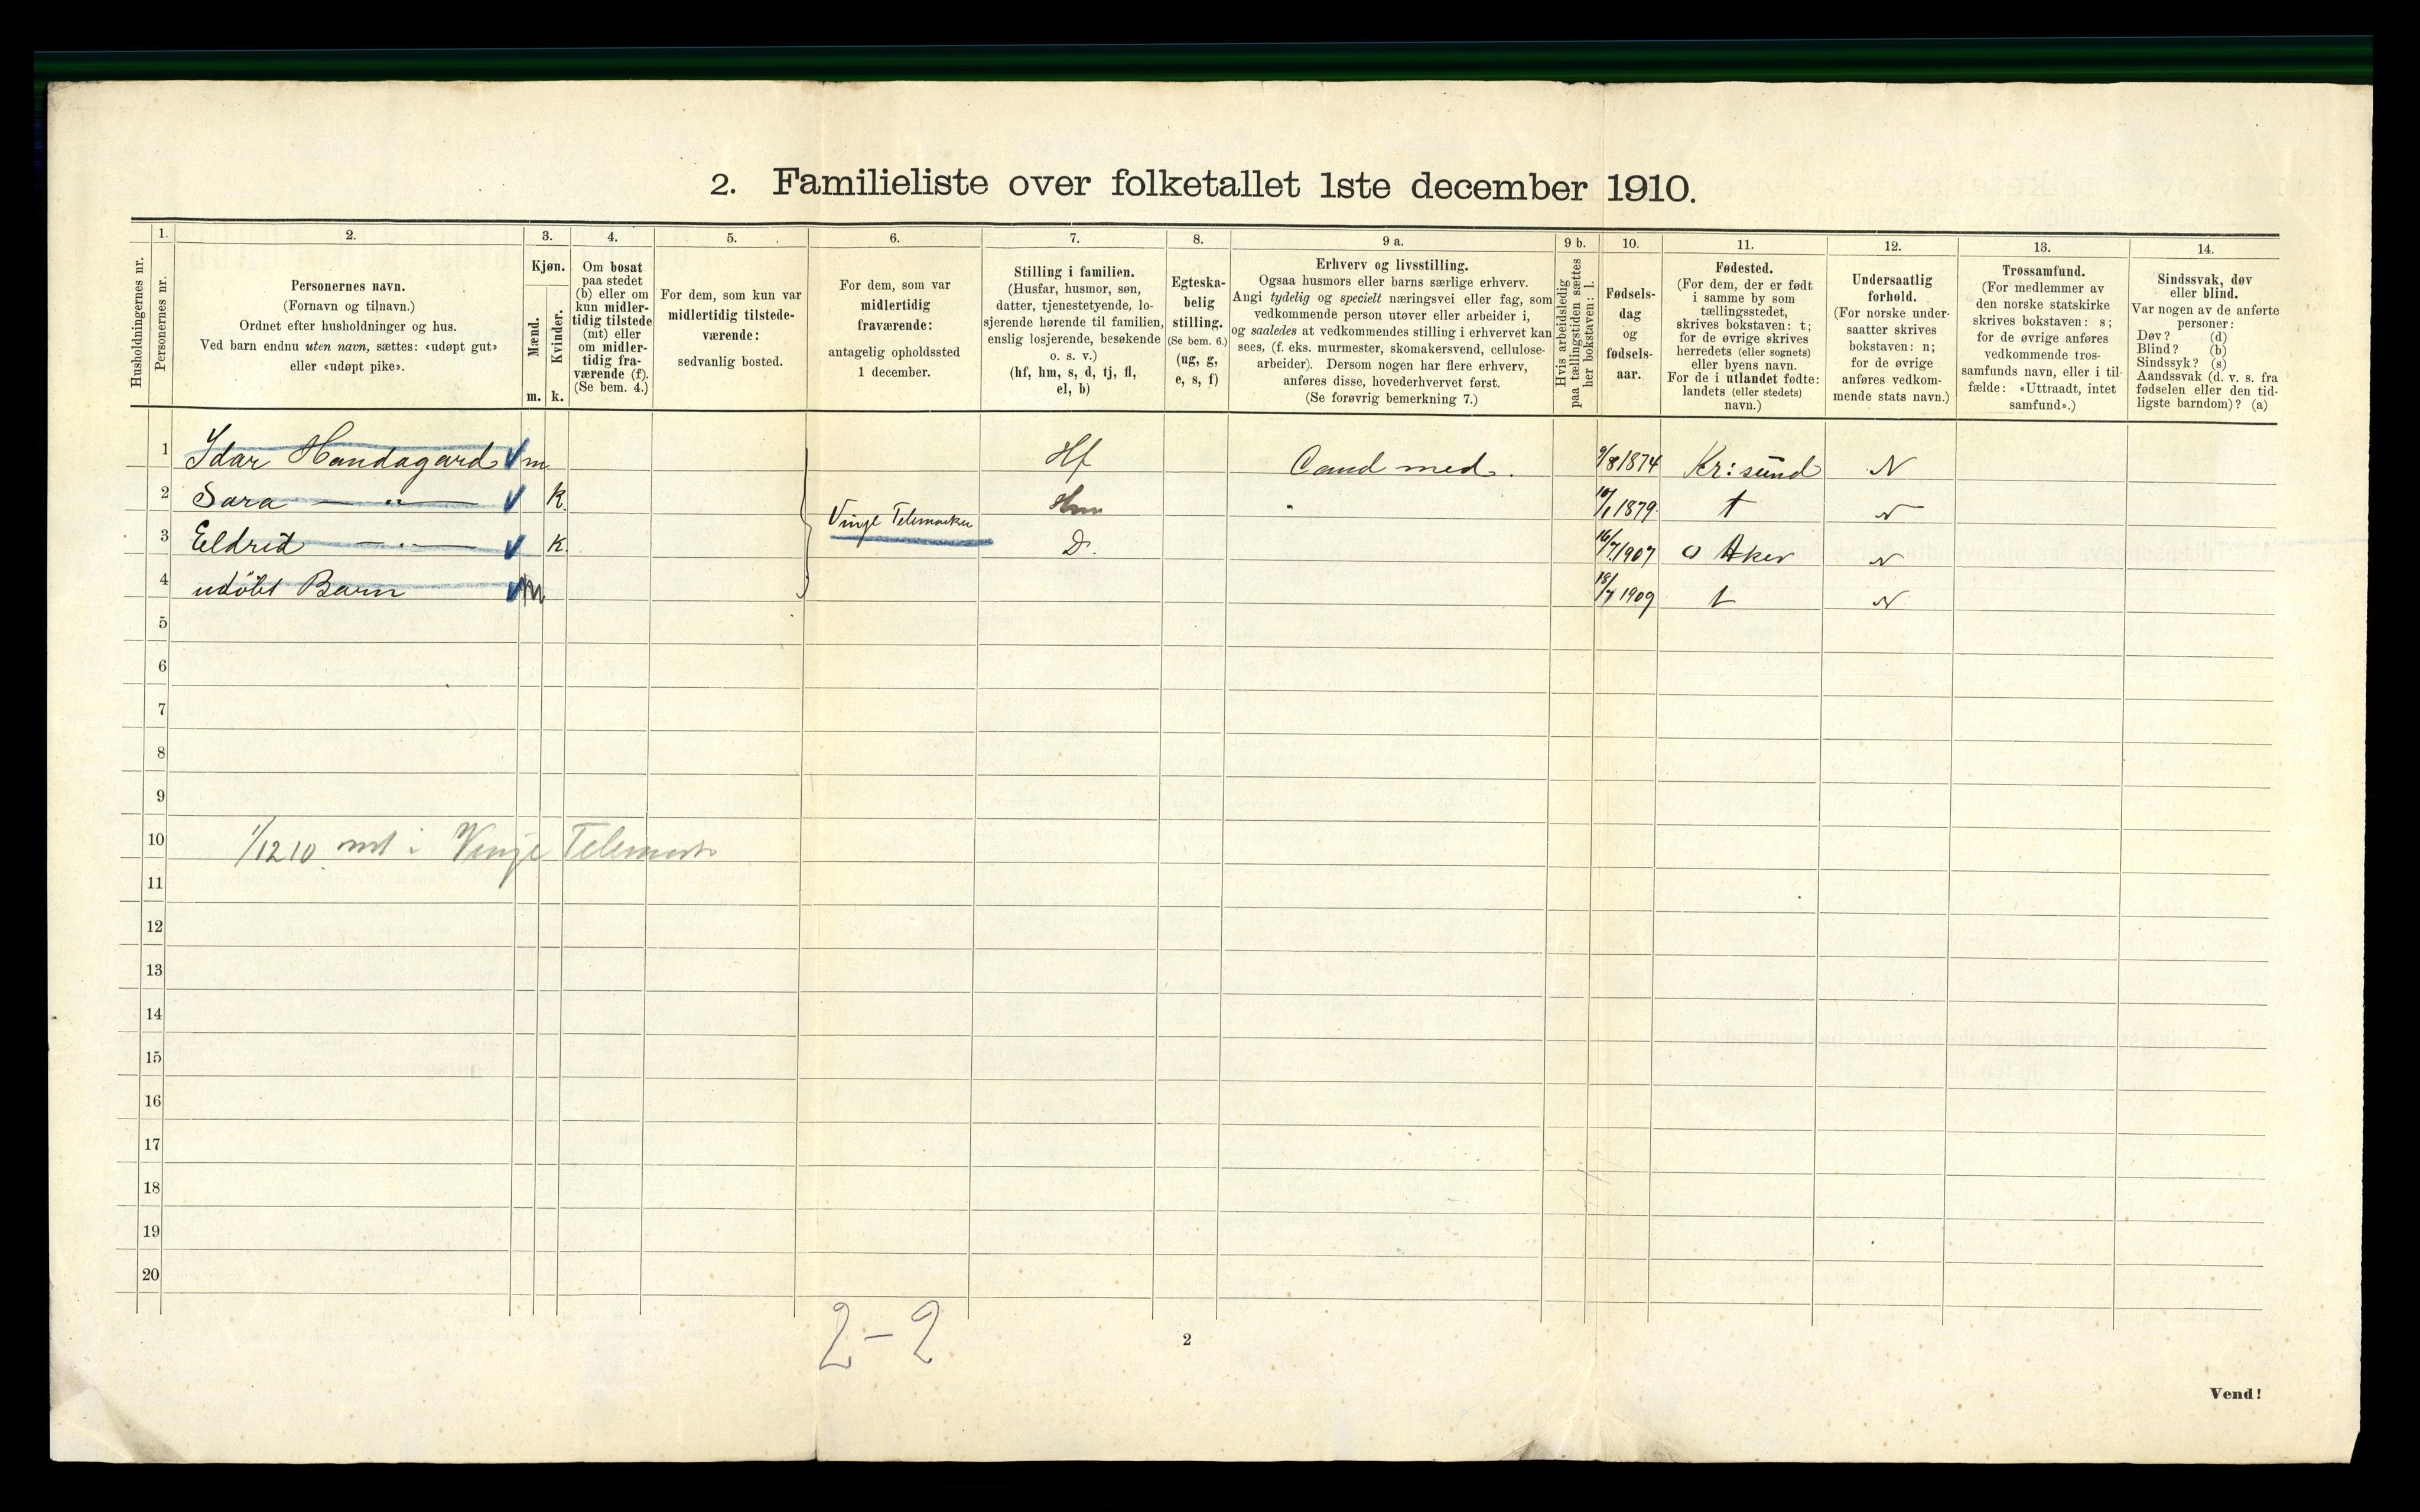 2. Familieliste over folketallet 1ste december 1910.
Husholdningernes nr.
1.
Personernes nr.
2.
Personernes navn.
(Fornavn og tilnavn.)
Ordnet efter husholdninger og hus.
Ved barn endnu uten navn, sættes: «udøpt gut»
eller «udøpt pike».
3.
Kjøn.
Mænd.
Kvinder.
m.
k.
4.
Om bosat
paa stedet
(b) eller om
kun midler-
tidig tilstede
(mt) eller
om midler-
tidig fra-
værende (f).
(Se bem. 4.)
5.
For dem, som kun var
midlertidig tilstede-
værende:
sedvanlig bosted.
6.
For dem, som var
midlertidig
fraværende:
antagelig opholdssted
1 december.
7.
Stilling i familien.
(Husfar, husmor, søn,
datter, tjenestetyende, lo-
sjerende hørende til familien,
enslig losjerende, besøkende
o. s. v.)
(hf, hm, s, d, tj, fl,
el, b)
8.
Egteska-
belig
stilling.
(Se bem. 6.)
(ug, g,
e, s, f)
9 a.
Erhverv og livsstilling.
Ogsaa husmors eller barns særlige erhverv.
Angi tydelig og specielt næringsvei eller fag, som
vedkommende person utøver eller arbeider i,
og saaledes at vedkommendes stilling i erhvervet kan
sees, (f. eks. murmester, skomakersvend, cellulose-
arbeider). Dersom nogen har flere erhverv,
anføres disse, hovederhvervet først.
(Se forøvrig bemerkning 7.)
9 b.
Hvis arbeidsledig
paa tællingstiden sættes
her bokstaven: l.
10.
Fødsels-
dag
og
fødsels-
aar.
11.
Fødested.
(For dem, der er født
i samme by som
tællingsstedet,
skrives bokstaven: t;
for de øvrige skrives
herredets (eller sognets)
eller byens navn.
For de i utlandet fødte:
landets (eller stedets)
navn.)
12.
Undersaatlig
forhold.
(For norske under-
saatter skrives
bokstaven: n;
for de øvrige
anføres vedkom-
mende stats navn.)
13.
Trossamfund.
(For medlemmer av
den norske statskirke
skrives bokstaven: s;
for de øvrige anføres
vedkommende tros-
samfunds navn, eller i til-
fælde: «Uttraadt, intet
samfund».)
14.
Sindssvak, døv
eller blind.
Var nogen av de anførte
personer:
Døv? (d)
Blind? (b)
Sindssyk? (s)
Aandssvak (d. v. s. fra
fødselen eller den tid-
ligste barndom)? (a)
1 Idar Handagard m Hf Cand med. 9/8 1874 Kr:sund N
2 Sara — " — k. Hm 10/1 1879 t N
Vinje Telemarken
3 Eldrid — " — k. D. 16/7 1907 Aker N
4 udöbt Barn m 18/7 1909 t N
5
6
7
8
9
10 1/12 10 mt i Vinje Telemark
11
12
13
14
15
16
17
18
19
20
2-2
2
Vend!